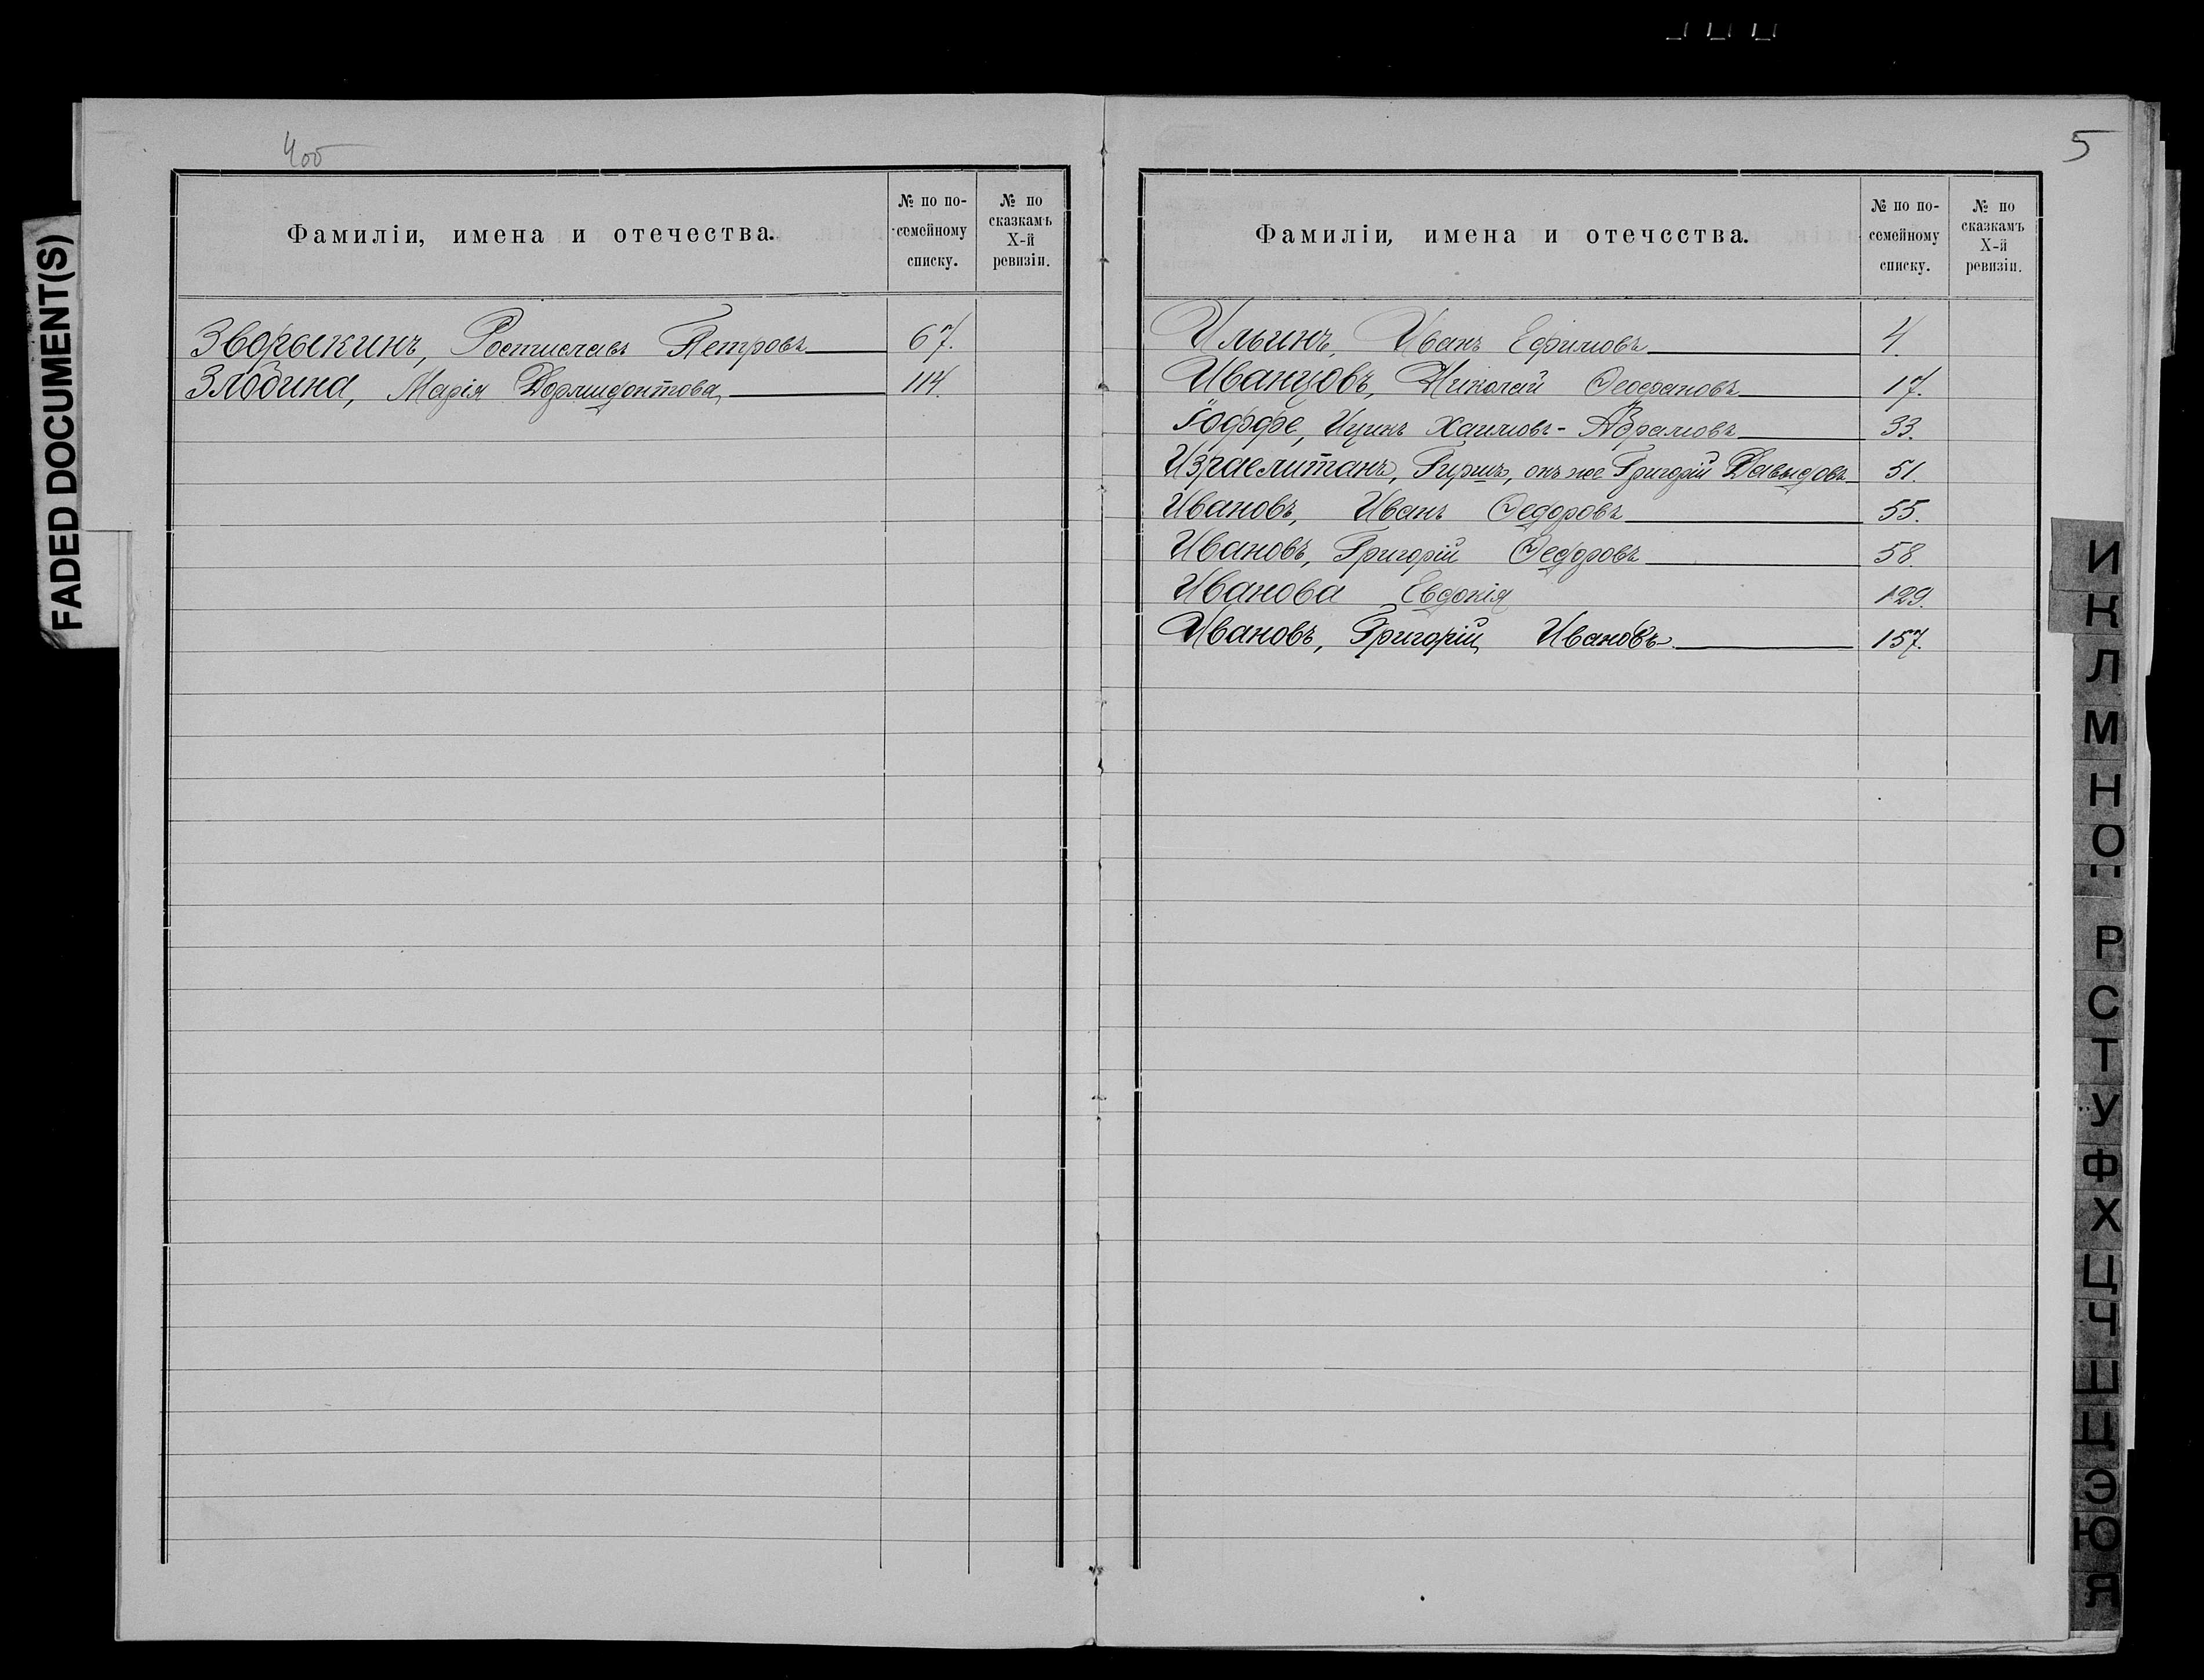 4об
Фамиліи, имена и отечества.
№ по по-
семейному
списку.
№ по
сказкамъ
X-й
ревизіи.
Зворыкинъ, Ростиславъ Петровъ 67.
Злобина, Марія Дормидонтова, 114.
FADED DOCUMENT(S)
5
Фамиліи, имена и отечества.
№ по по-
семейному
списку.
№ по
сказкамъ
X-й
ревизіи.
Ильинъ, Иванъ Ефимовъ 4.
Иванцовъ, Николай Ѳеофановъ 17.
Іоффе, Ицикъ Хаимовъ-Абрамовъ 33.
Израелитанъ, Гиршъ, онъ же Григорій Давыдовъ 51.
Ивановъ, Иванъ Ѳедоровъ 55.
Ивановъ, Григорій Ѳедоровъ 58.
Иванова Евдокія 129.
Ивановъ, Григорій Ивановъ 157.
И
К
Л
М
Н
О
П
Р
С
Т
У
Ф
Х
Ц
Ч
Ш
Щ
Э
Ю
Я